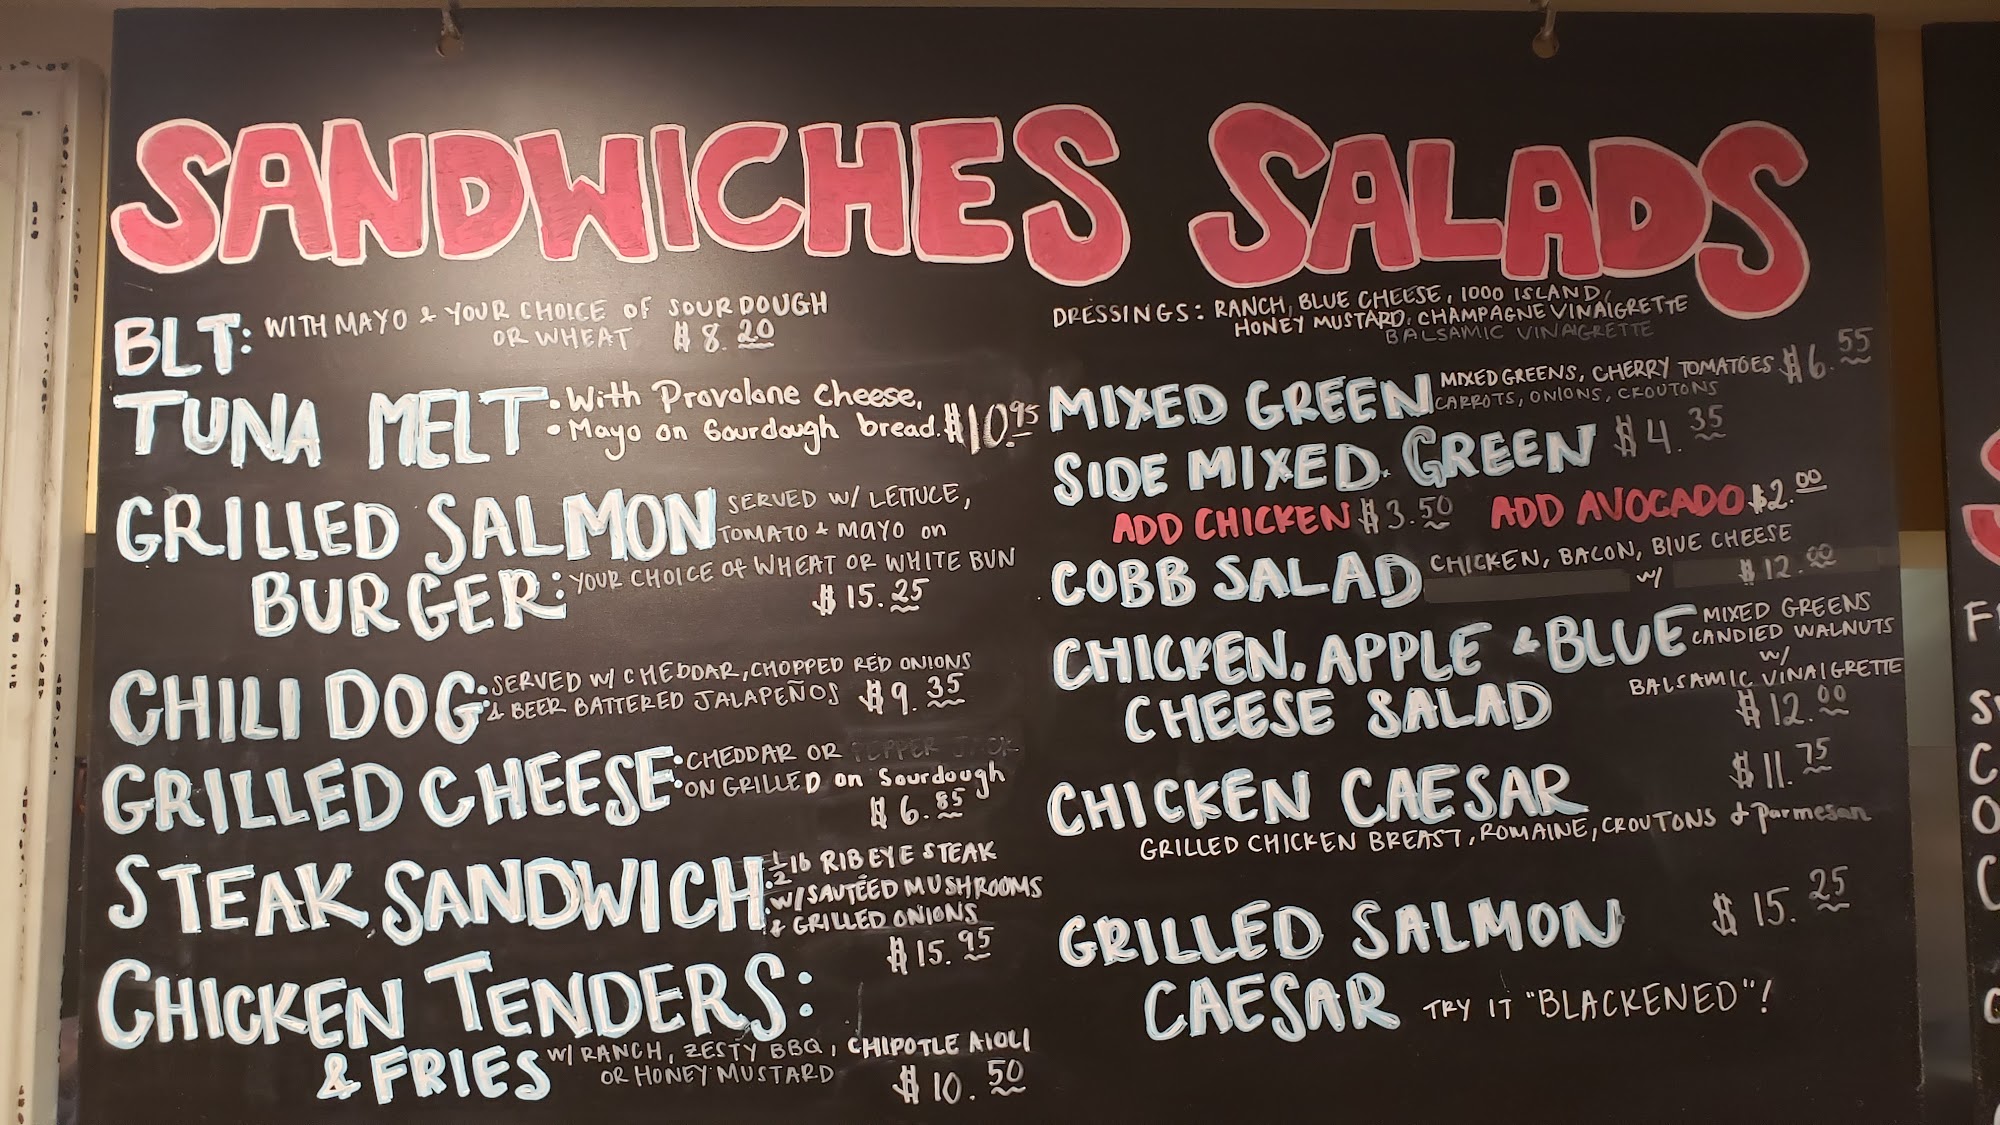 SANDWICHES
BLT: WITH MAYO & YOUR CHOICE OF SOURDOUGH
OR WHEAT $8.20
TUNA MELT • With Provolone Cheese,
• Mayo on Sourdough bread. $10.95
GRILLED SALMON SERVED W/ LETTUCE,
TOMATO & MAYO on
BURGER: YOUR CHOICE OF WHEAT OR WHITE BUN
$15.25
CHILI DOG: SERVED W/ CHEDDAR, CHOPPED RED ONIONS
& BEER BATTERED JALAPEÑOS $9.35
GRILLED CHEESE: CHEDDAR OR PEPPER JACK
ON GRILLED on Sourdough
$6.85
STEAK SANDWICH: 1/2 lb RIBEYE STEAK
W/ SAUTÉED MUSHROOMS
& GRILLED ONIONS
$15.95
CHICKEN TENDERS:
& FRIES W/ RANCH, ZESTY BBQ, CHIPOTLE AIOLI
OR HONEY MUSTARD $10.50
SALADS
DRESSINGS: RANCH, BLUE CHEESE, 1000 ISLAND,
HONEY MUSTARD, CHAMPAGNE VINAIGRETTE
BALSAMIC VINAIGRETTE
MIXED GREEN MIXED GREENS, CHERRY TOMATOES $6.55
CARROTS, ONIONS, CROUTONS
SIDE MIXED GREEN $4.35
ADD CHICKEN $3.50 ADD AVOCADO $2.00
COBB SALAD CHICKEN, BACON, BLUE CHEESE
W/ $12.00
CHICKEN, APPLE & BLUE MIXED GREENS
CANDIED WALNUTS
W/
CHEESE SALAD BALSAMIC VINAIGRETTE
$12.00
CHICKEN CAESAR $11.75
GRILLED CHICKEN BREAST, ROMAINE, CROUTONS & Parmesan
GRILLED SALMON $15.25
CAESAR TRY IT "BLACKENED"!